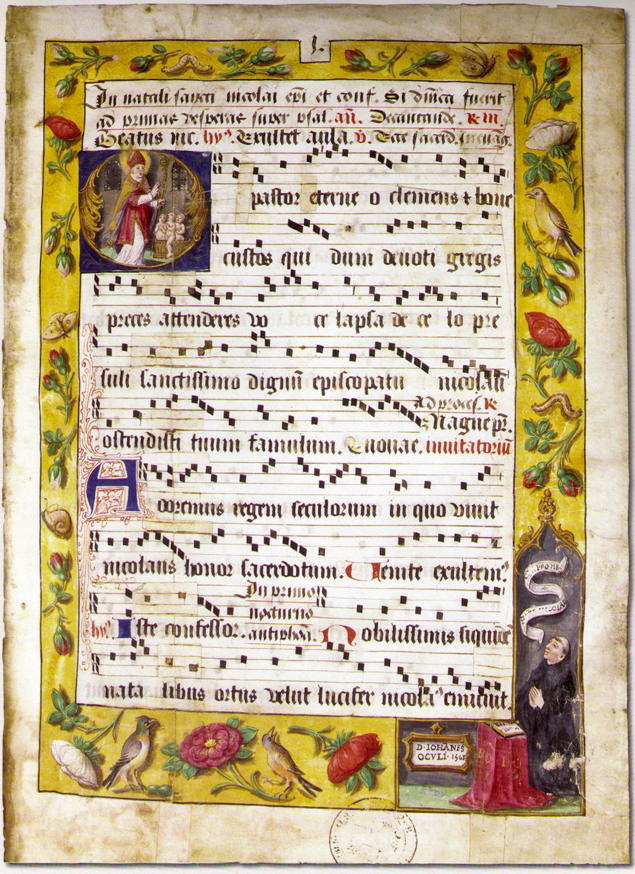 j.
In natali sancti nicolai epi et conf. Si dnica fuerit
ad primas vesperas super psal. añ.
Beatus nic. hyᵒ. Exultet aula. v. Ecce sacerd.
O pastor eterne o clemens & bone
custos qui dum devoti gregis
preces attenderes vo ce lapsa de ce lo pre
suli sanctissimo dignũ episcopatu nicolaũ
Ad proces. R.
Magne pr̃.
ostendisti tuum famulum. Evovae. invitatoriũ
Adoremus regem seculorum in quo vivit
nicolaus honor sacerdotum. Venite exultemᵒ
In primo
nocturno
hyᵒ. Iste confessor. antiphoa. Nobilissimis siquidẽ
nata libus ortus velut lucifer nicolaᵒ emicuit.
D·IOHANES
OCVLI·